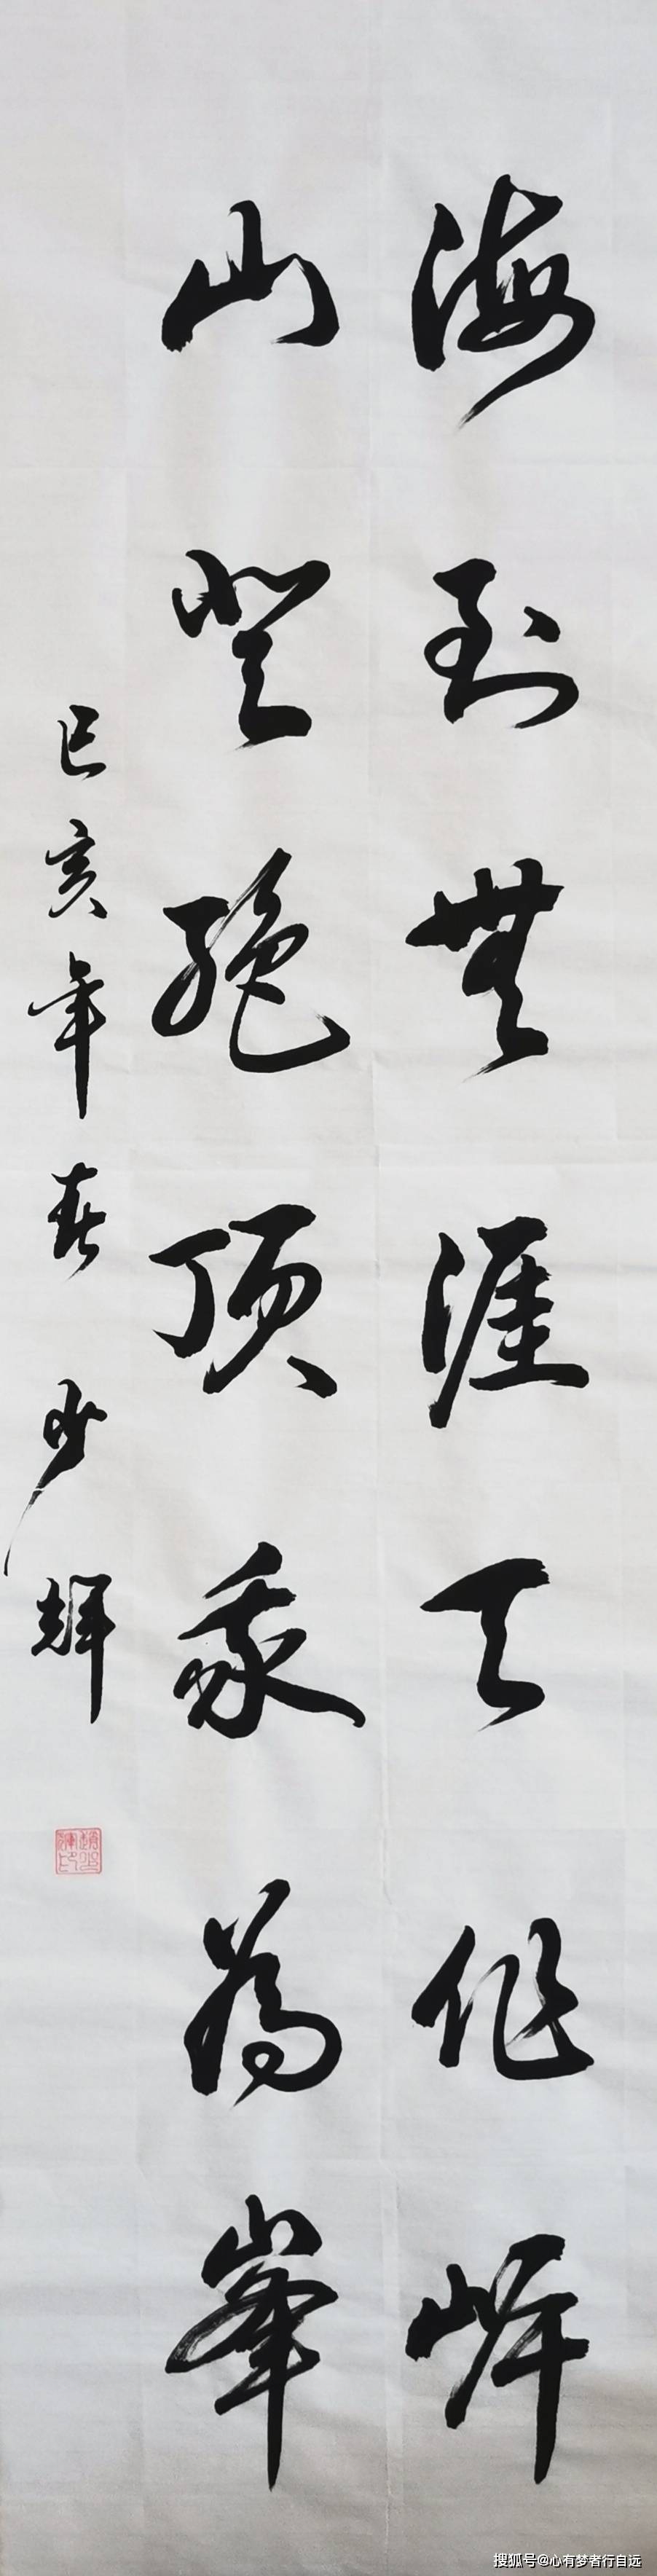 海到無涯天作岸
山登絶顶我為峯
己亥年春 少辉
搜狐号@心有梦者行自远